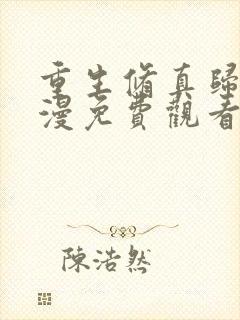 重生脩真歸
漫免費觀看
陳浩然